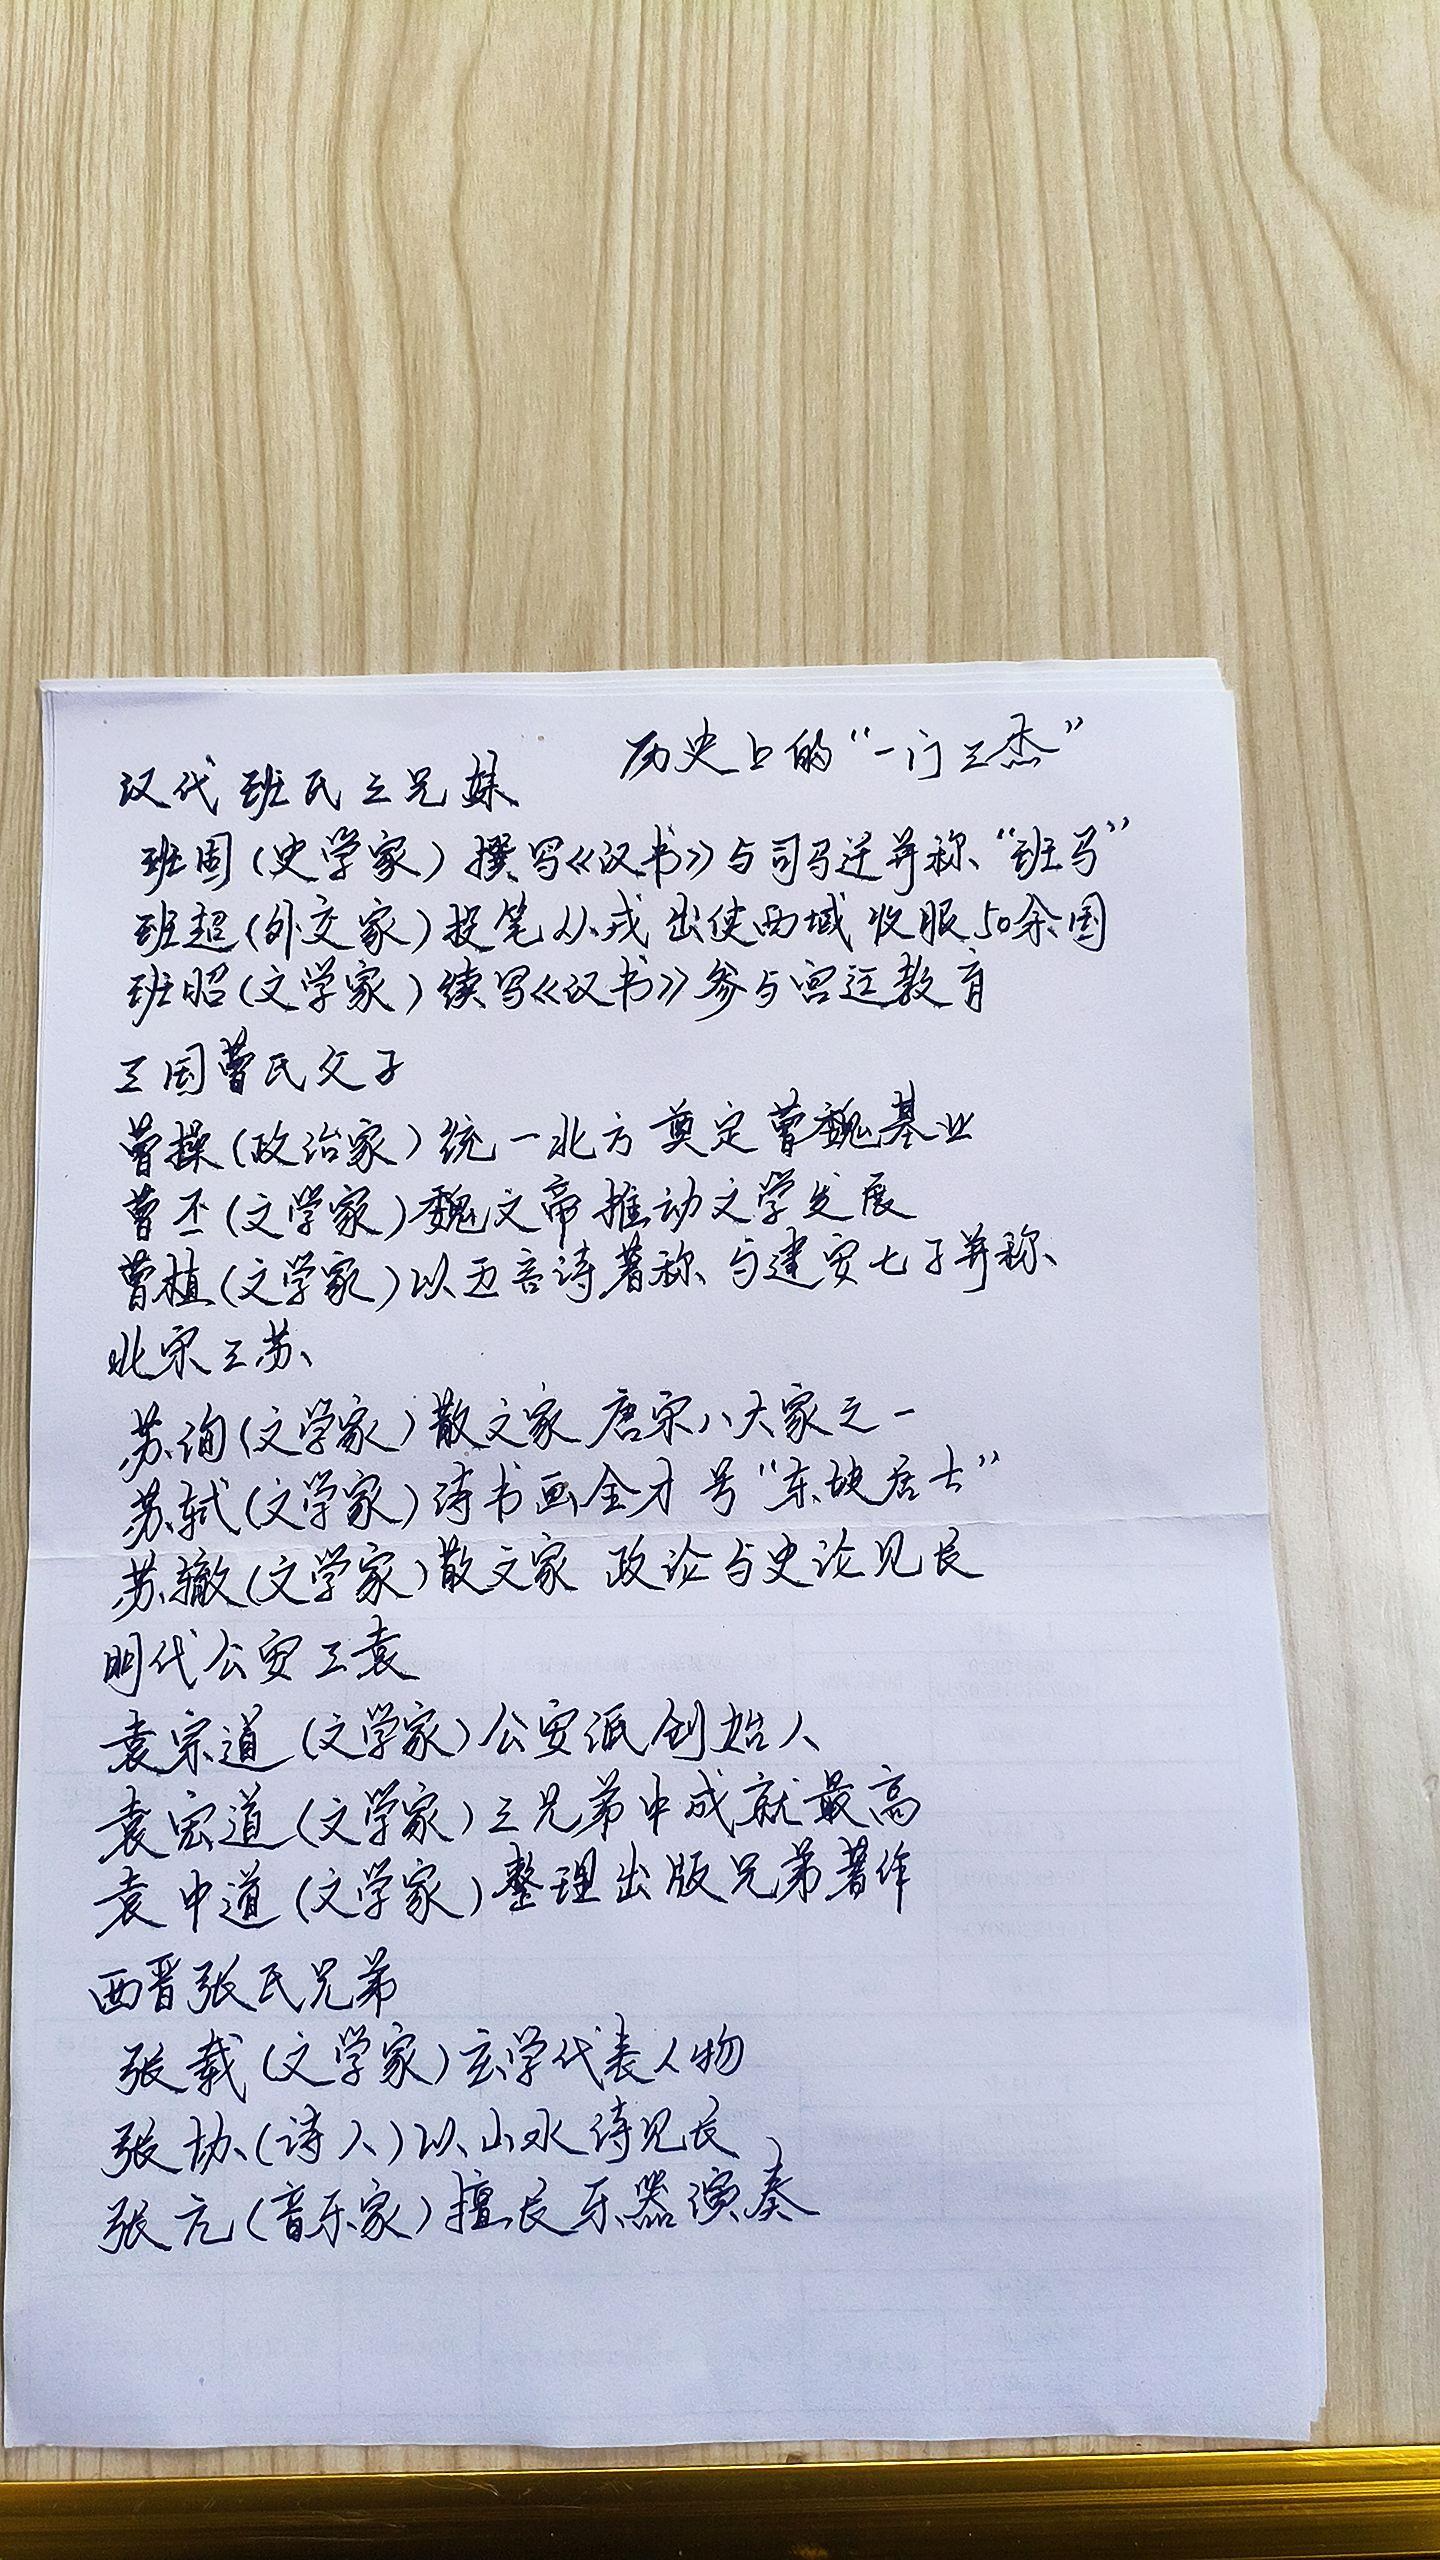 历史上的“一门三杰”
汉代班氏三兄妹
班固(史学家)撰写《汉书》与司马迁并称“班马”
班超(外交家)投笔从戎 出使西域 收服50余国
班昭(文学家)续写《汉书》参与宫廷教育
三国曹氏父子
曹操(政治家)统一北方 奠定曹魏基业
曹丕(文学家)魏文帝 推动文学发展
曹植(文学家)以五言诗著称 与建安七子并称
北宋三苏
苏洵(文学家)散文家 唐宋八大家之一
苏轼(文学家)诗书画全才 号“东坡居士”
苏辙(文学家)散文家 政论与史论见长
明代公安三袁
袁宗道(文学家)公安派创始人
袁宏道(文学家)三兄弟中成就最高
袁中道(文学家)整理出版兄弟著作
西晋张氏兄弟
张载(文学家)玄学代表人物
张协(诗人)以山水诗见长
张亢(音乐家)擅长乐器演奏